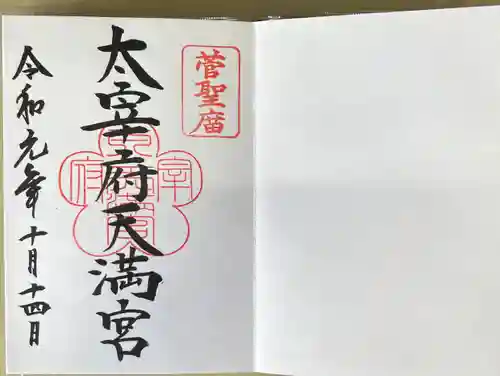 菅聖廟
太宰府天満宮
令和元年十月十四日